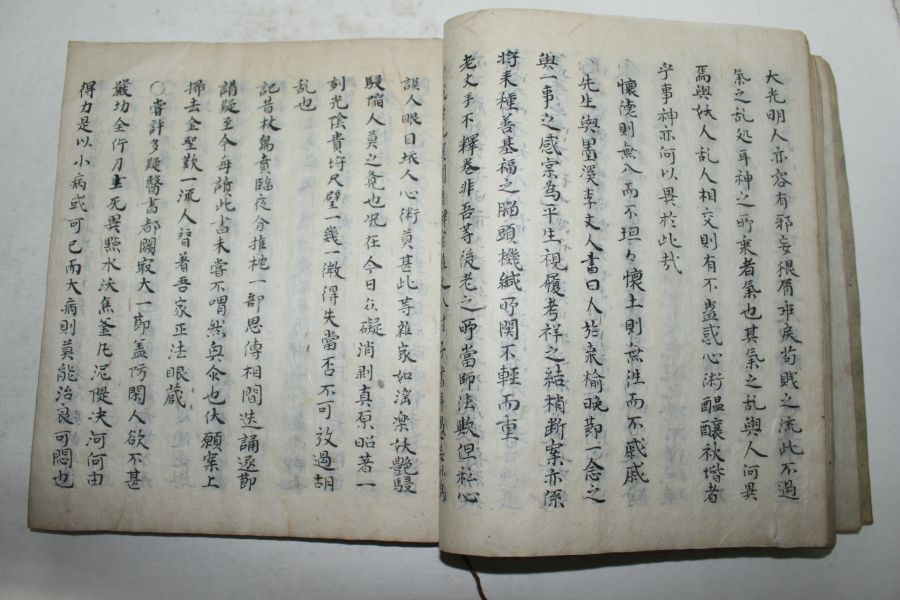 大光明人亦容有邪妄猥屑乖戾苟賤之流此不過
氣之乱処耳神之所乘者氣也其氣之乱與人何異
焉與妖人乱人相交則有不蠱惑心術醞釀秋偕者
乎事神亦何以異於此哉
懷德則無入而不坦々懷土則無往而不戚戚
先生與墨溪李丈人書曰人於桑榆晚節一念之
與一事之感宲為平生視履考祥之結梢断案亦係
将来種善基福之腦頭機緘所関不輕而重
老丈手不釋卷非吾等後老之所當師法歟但私心
誤人眼目坏人心術莫甚此等雜家如淫樂妖艷駸
駸陷人莫之覺也况在今日众礙消剥真原昭著一
刻光陰貴埒尺璧一幾一微得失當否不可放過胡
乱也
記昔杖屨賁臨夜分推枕一部思傳相間迭誦逐節
請疑至今每讀此書未嘗不喟然與傷也伏願案上
掃去金聖歎一流人習着吾家正法眼蔵
○嘗許多疑醫書都闕寂大一節盖防閑人欲不甚
嚴切全仰刀圭死異點水沃焦釜凡泥偃决河何由
得力是以小病或可已而大病則莫能治良可悶也